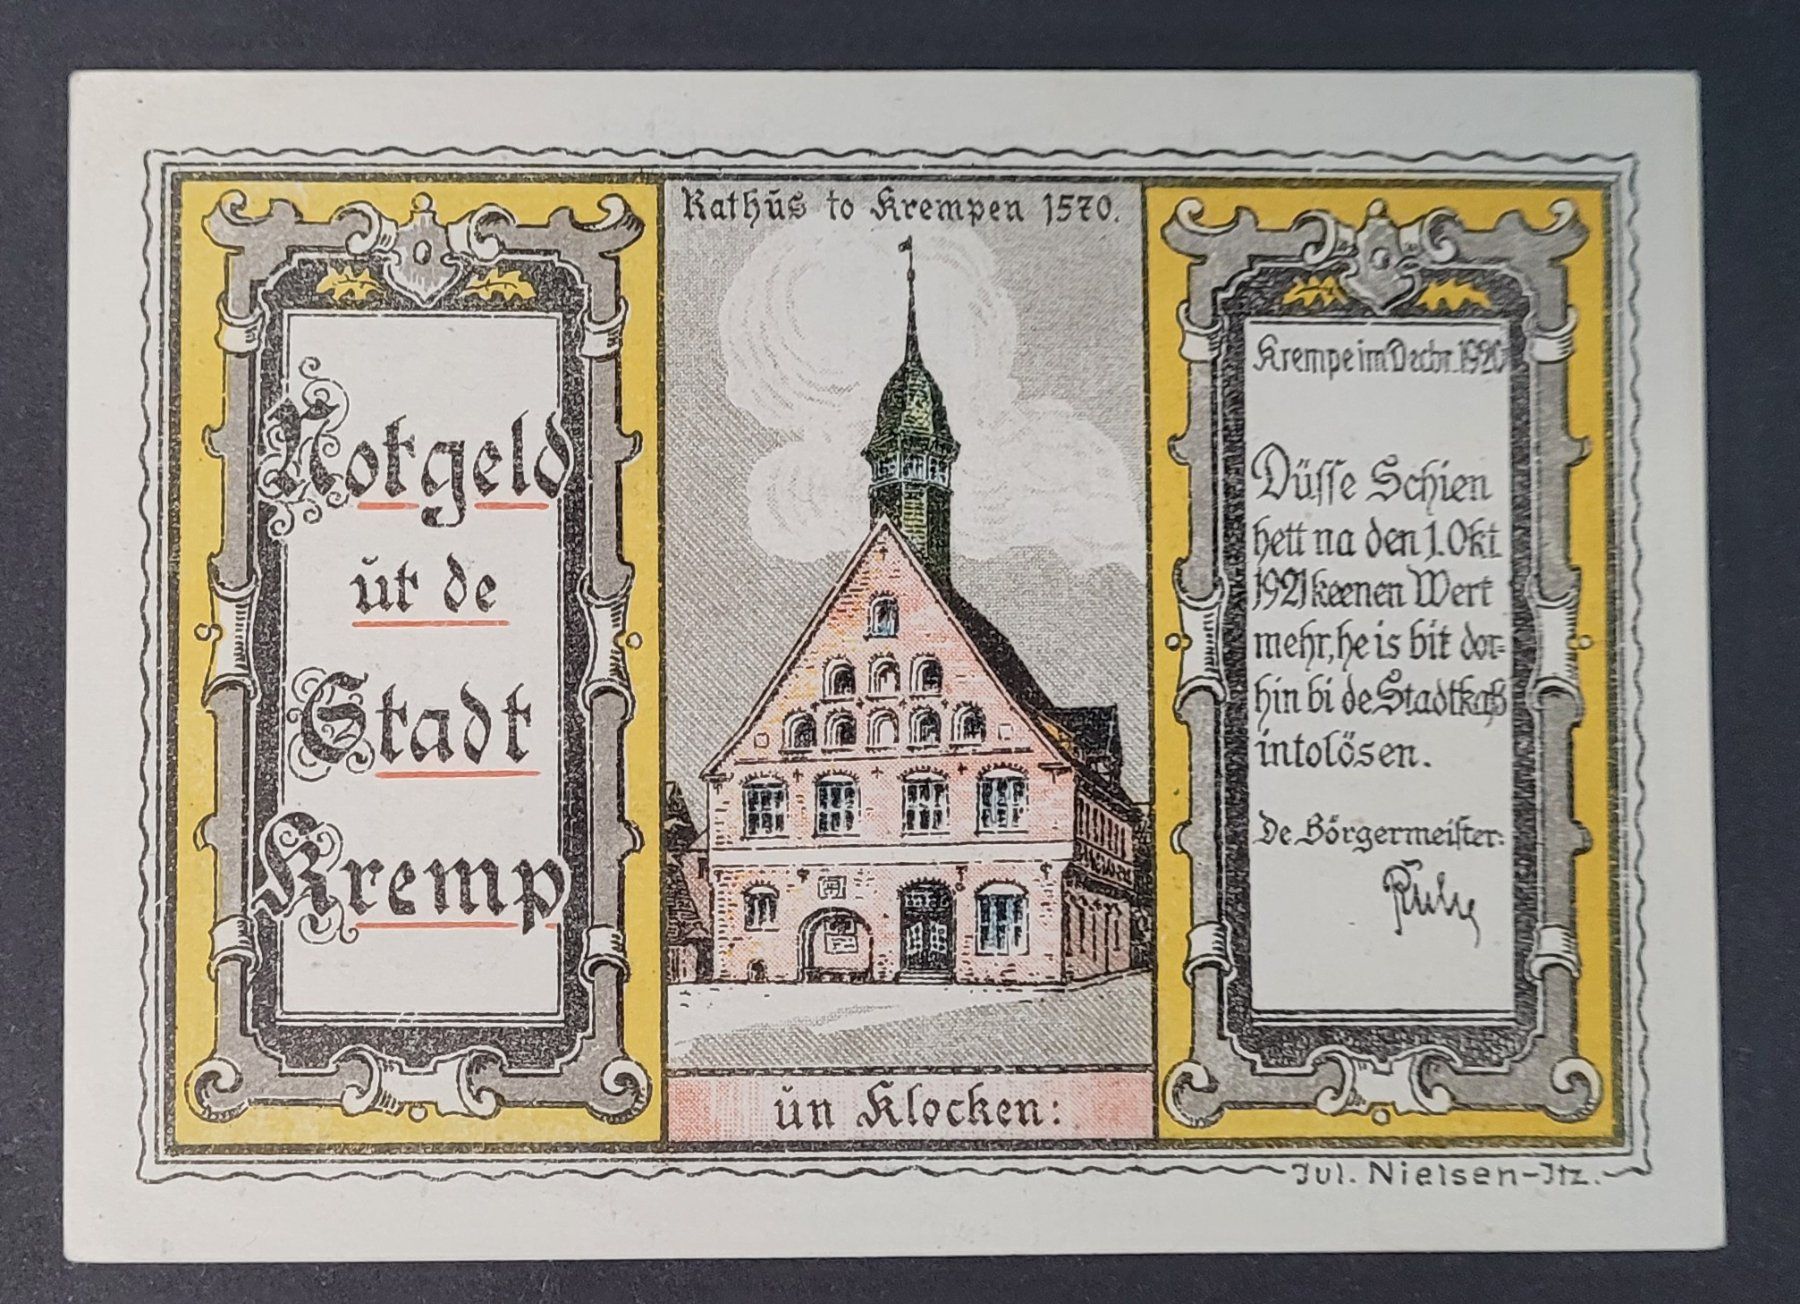 Notgeld
ŭt de
Stadt
Kremp
Rathŭs to Krempen 1570.
ŭn Klocken:
Krempe im Decbr. 1920
Düsse Schien
hett na den 1. Okt.
1921 keenen Wert
mehr, he is bit dor-
hin bi de Stadtkaß
intolösen.
De Börgermeister:
Jul. Nielsen-Itz.